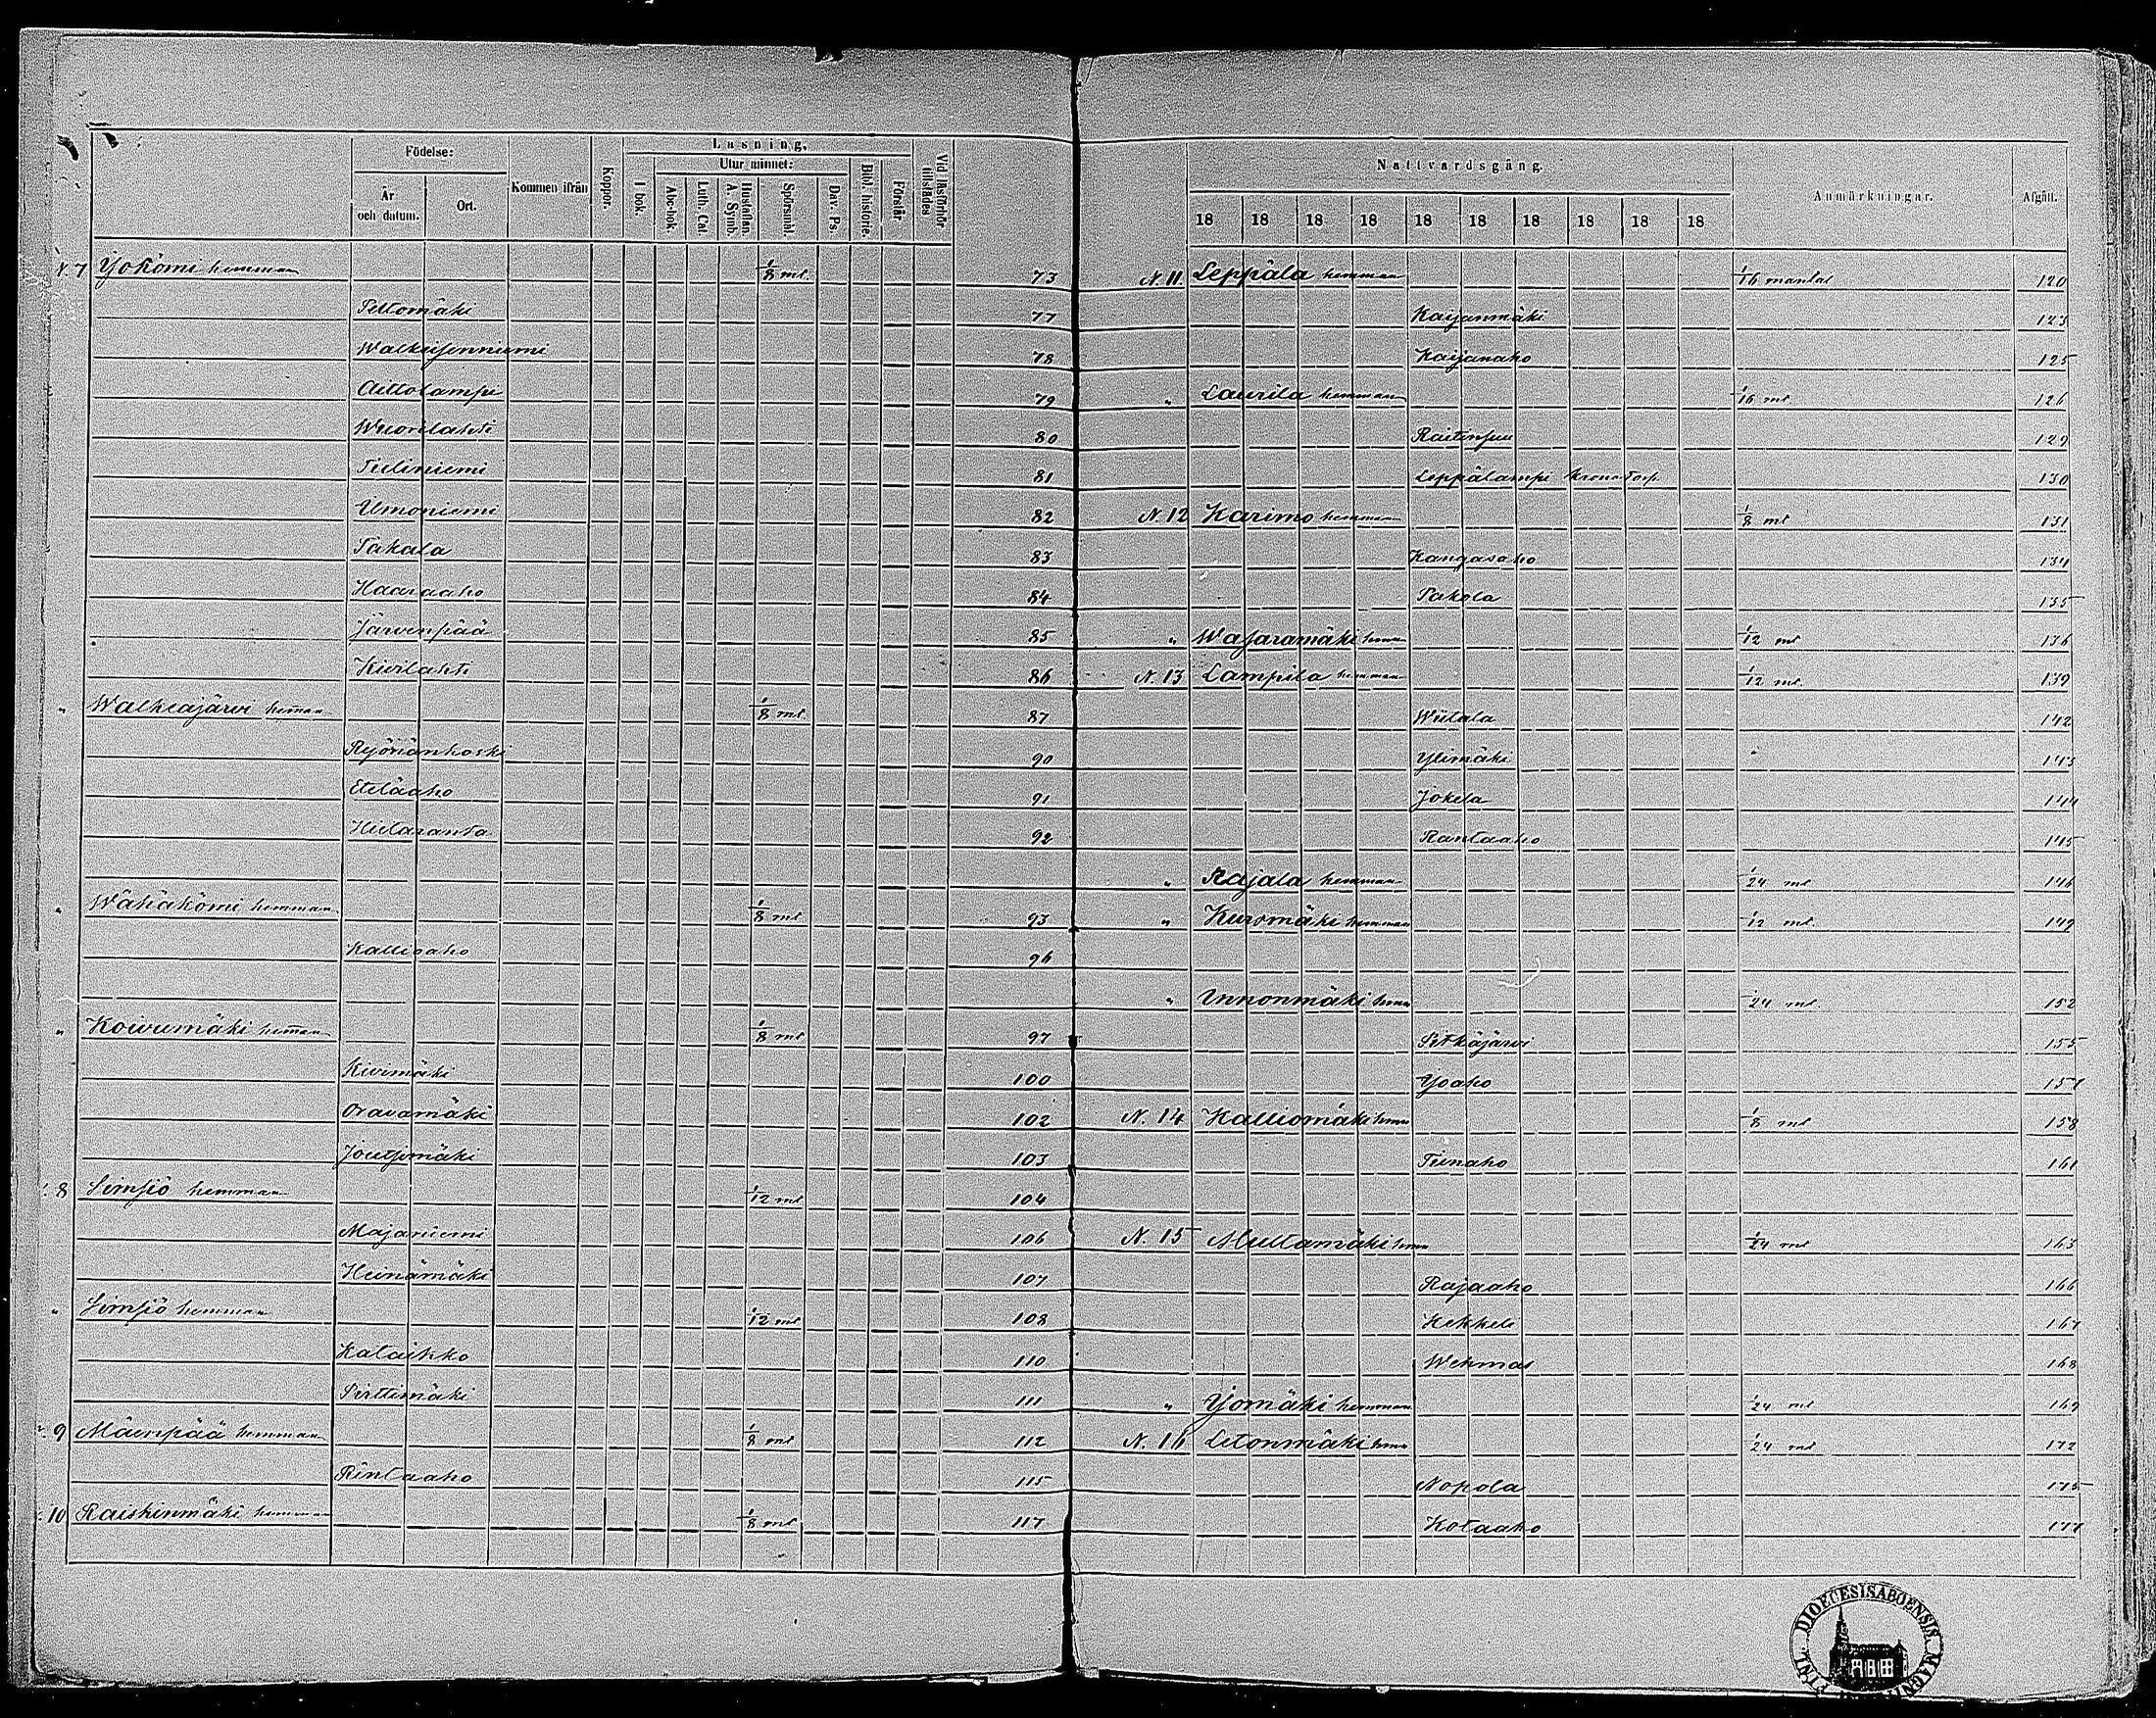 Födelse:
År och datum.
Ort.
Kommen ifrån
Koppor.
Läsning.
I bok.
Utur minnet:
Abc-bok
Luth. Cat.
Hustaflan. A. Symb.
Spörsmål.
Dav. Ps.
Bibl. historie.
Förstår
Vid läsförhör tillstädes
N. 7 Yökömi hemman 1/8 ml. 73
Peltomäki 77
Walkeisenniemi 78
Aittolampi 79
Wuorilahti 80
Tiiliniemi 81
Umoniemi 82
Takala 83
Haaraaho 84
Järvenpää 85
Kivilahti 86
" Walkiajärvi heman 1/8 ml 87
Ryönänkoski 90
Eteläaho 91
Hietaranta 92
" Wähäkömi hemman 1/8 ml 93
Kallioaho 96
" Koivumäki heman 1/8 ml 97
Kivimäki 100
Oravamäki 102
Joutsimäki 103
8 Simsiö hemman 1/12 ml 104
Majaniemi 106
Heinämäki 107
" Simsiö hemman 1/12 ml 108
Kalaikko 110
Pirttimäki 111
9 Mäenpää hemman 1/8 ml 112
Rintaaho 115
10 Raiskinmäki hemman 1/8 ml 117
Nattvardsgång.
18 18 18 18 18 18 18 18 18 18
Anmärkningar.
Afgått.
N. 11. Leppälä hemman 1/16 mantal 120
Kaijanmäki 123
Kaijanaho 125
" Laurila hemman 1/16 ml 126
Raitinsuu 129
Leppälampi Krono Torp 130
N. 12 Karimo hemman 1/8 ml 131
Kangasaho 134
Takala 135
" Wasaramäki hemn 1/12 ml 136
N. 13 Lampila hemman 1/12 ml. 139
Wiitala 142
Ylimäki " 143
Jokela 144
Rantaaho 145
" Rajala hemman 1/24 ml 146
" Kuromäki hemman 1/12 ml. 149
" Unnonmäki hemn 1/24 ml 152
Pitkäjärvi 155
Yöaho 157
N. 14 Kalliomäki hemn 1/8 ml 158
Tiinaho 161
N. 15 Multamäki hemn 1/24 ml 163
Rajaaho 166
Kekkele 167
Wehmas 168
" Yömäki hemman 1/24 ml 169
N. 16 Letonmäki hemn 1/24 ml 172
Nopola 175
Kotaaho 177
DIOECESIS ABOENSIS